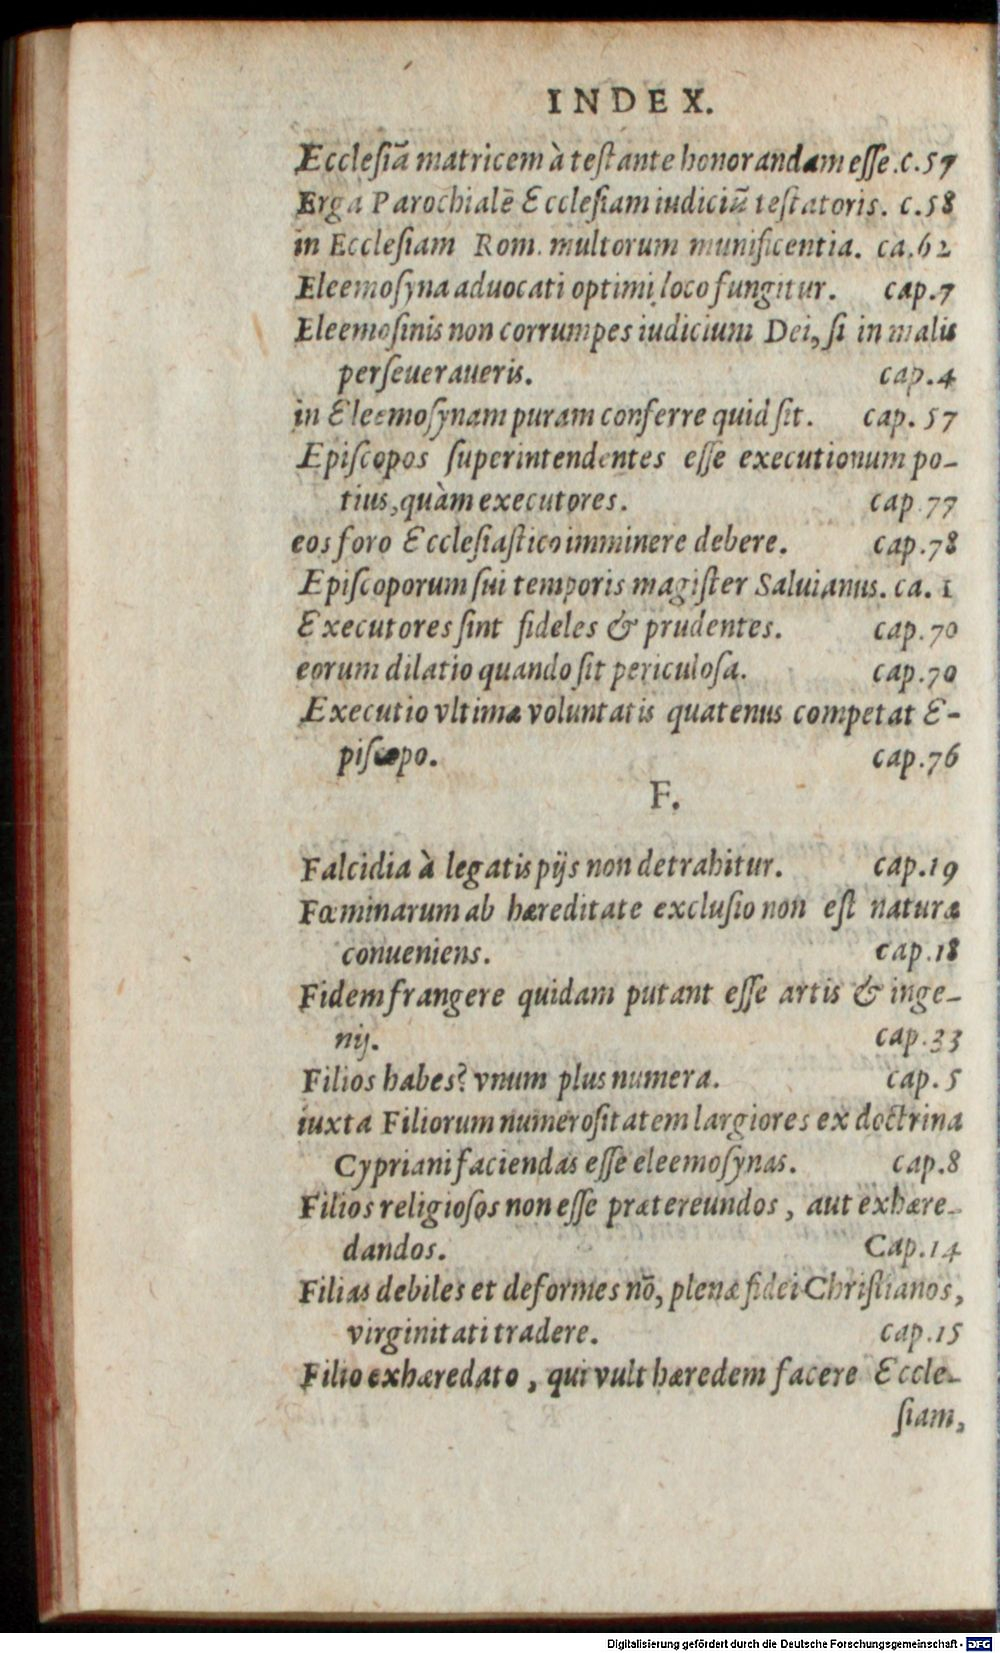 INDEX.
Ecclesiā matricem à testante honorandam esse. c.57
Erga Parochialē Ecclesiam iudiciū testatoris. c.58
in Ecclesiam Rom. multorum munificentia. ca.62
Eleemosyna aduocati optimi loco fungitur. cap.7
Eleemosinis non corrumpes iudicium Dei, si in malis
perseueraueris. cap.4
in Eleemosynam puram conferre quid sit. cap. 57
Episcopos superintendentes esse executionum po-
tius, quàm executores. cap.77
eos foro Ecclesiastico imminere debere. cap.78
Episcoporum sui temporis magister Saluianus. ca. 1
Executores sint fideles & prudentes. cap.70
eorum dilatio quando sit periculosa. cap.70
Executio vltimæ voluntatis quatenus competat E-
piscopo. cap.76
F.
Falcidia à legatis pijs non detrahitur. cap.19
Fœminarum ab hæreditate exclusio non est naturæ
conueniens. cap.18
Fidem frangere quidam putant esse artis & inge-
nij. cap.33
Filios habes? vnum plus numera. cap.5
iuxta Filiorum numerositatem largiores ex doctrina
Cypriani faciendas esse eleemosynas. cap.8
Filios religiosos non esse prætereundos, aut exhære-
dandos. Cap.14
Filias debiles et deformes nō, plenæ fidei Christianos,
virginitati tradere. cap.15
Filio exhæredato, qui vult hæredem facere Eccle-
siam,
Digitalisierung gefördert durch die Deutsche Forschungsgemeinschaft - DFG